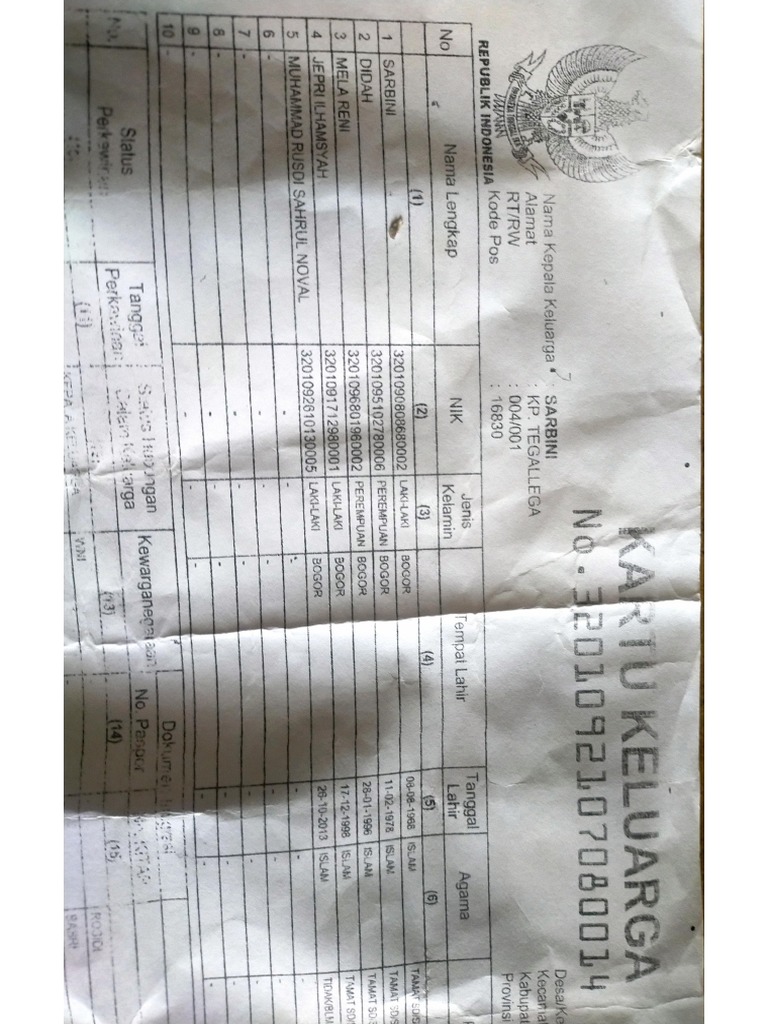 KARTU KELUARGA
No. 3201092107080014
REPUBLIK INDONESIA
Nama Kepala Keluarga : SARBINI
Alamat : KP. TEGALLEGA
RT/RW : 004/001
Kode Pos : 16830
Desa/Ke
Kecama
Kabupat
Provinsi
No Nama Lengkap NIK Jenis Kelamin Tempat Lahir Tanggal Lahir Agama
(1) (2) (3) (4) (5) (6)
1 SARBINI 3201090808680002 LAKI-LAKI BOGOR 08-08-1968 ISLAM TAMAT SD/S
2 DIDAH 3201095102780006 PEREMPUAN BOGOR 11-02-1978 ISLAM TAMAT SD/S
3 MELA RENI 3201096801960002 PEREMPUAN BOGOR 28-01-1996 ISLAM TAMAT SD/S
4 JEPRI ILHAMSYAH 3201091712980001 LAKI-LAKI BOGOR 17-12-1998 ISLAM TAMAT SD/
5 MUHAMMAD RUSDI SAHRUL NOVAL 3201092610130005 LAKI-LAKI BOGOR 26-10-2013 ISLAM TIDAK/BLM
6 - - - - - -
7 - - - - - -
8 - - - - - -
9 - - - - - -
10 - - - - - -
No. Status Perkawinan Tanggal Perkawinan Status Hubungan Dalam Keluarga Kewarganegaraan Dokumen Imigrasi
No. Paspor
(11) (13) (14) (15)
KEPALA KELUARGA WNI - ROJIDI